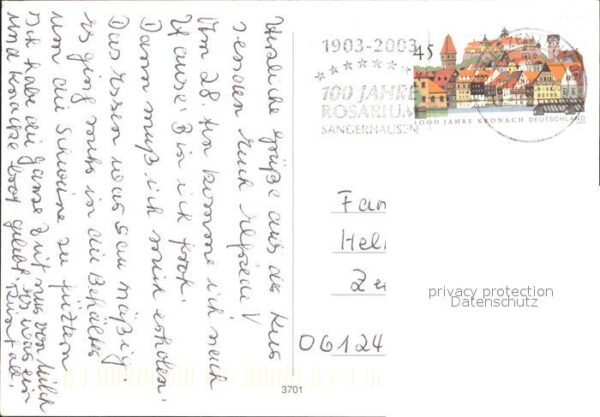 Herzliche Grüße aus der Kur
senden Euch
Am 28. ten komme ich nach
Hause! Bin ich froh!
Dann muß ich mich erholen!
Das essen war sau mäßig.
Es ging meist in die Behälter
um die Schweine zu füttern
Ich habe die ganze Zeit nur von Milch
und Knäckebrot gelebt. Es war ein
Reinfall
1903-2003
100 JAHRE
ROSARIUM
SANGERHAUSEN
45
1000 JAHRE KRONACH DEUTSCHLAND
Fam
Hel
Ze
06124
privacy protection
Datenschutz
3701